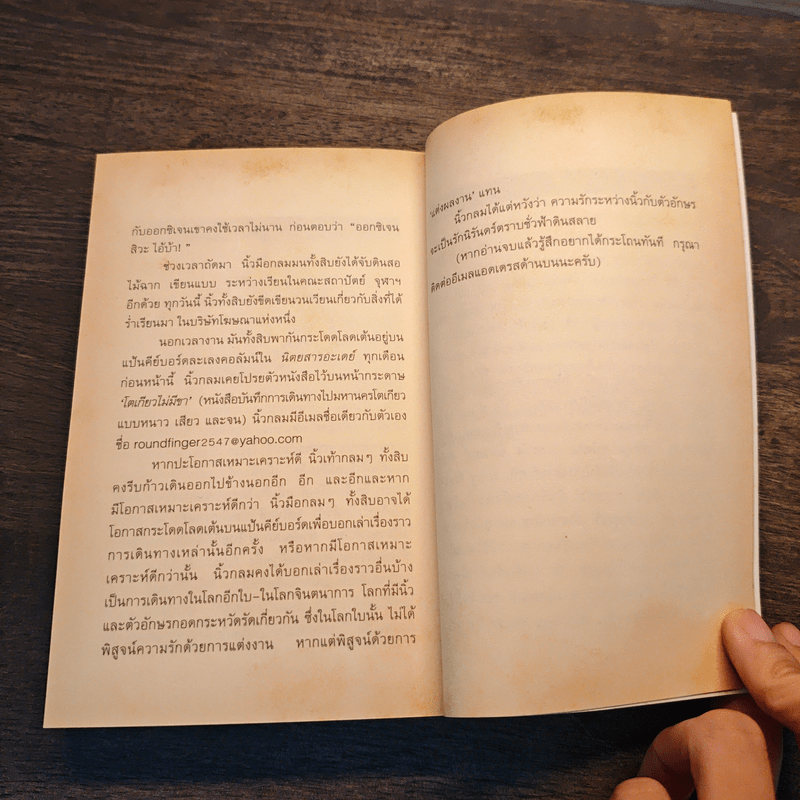 กับออกซิเจนเขาคงใช้เวลาไม่นาน ก่อนตอบว่า “ออกซิเจน
สิวะ ไอ้บ้า! ”
ช่วงเวลาถัดมา นิ้วมือกลมมนทั้งสิบยังได้จับดินสอ
ไม้ฉาก เขียนแบบ ระหว่างเรียนในคณะสถาปัตย์ จุฬาฯ
อีกด้วย ทุกวันนี้ นิ้วทั้งสิบยังขีดเขียนวนเวียนเกี่ยวกับสิ่งที่ได้
ร่ำเรียนมา ในบริษัทโฆษณาแห่งหนึ่ง
นอกเวลางาน มันทั้งสิบพากันกระโดดโลดเต้นอยู่บน
แป้นคีย์บอร์ดละเลงคอลัมน์ใน นิตยสารอะเดย์ ทุกเดือน
ก่อนหน้านี้ นิ้วกลมเคยโปรยตัวหนังสือไว้บนหน้ากระดาษ
‘โตเกียวไม่มีขา’ (หนังสือบันทึกการเดินทางไปมหานครโตเกียว
แบบหนาว เสียว และจน) นิ้วกลมมีอีเมลชื่อเดียวกับตัวเอง
ชื่อ roundfinger2547@yahoo.com
หากปะโอกาสเหมาะเคราะห์ดี นิ้วเท้ากลมๆ ทั้งสิบ
คงรีบก้าวเดินออกไปข้างนอกอีก อีก และอีกและหาก
มีโอกาสเหมาะเคราะห์ดีกว่า นิ้วมือกลมๆ ทั้งสิบอาจได้
โอกาสกระโดดโลดเต้นบนแป้นคีย์บอร์ดเพื่อบอกเล่าเรื่องราว
การเดินทางเหล่านั้นอีกครั้ง หรือหากมีโอกาสเหมาะ
เคราะห์ดีกว่านั้น นิ้วกลมคงได้บอกเล่าเรื่องราวอื่นบ้าง
เป็นการเดินทางในโลกอีกใบ-ในโลกจินตนาการ โลกที่มีนิ้ว
และตัวอักษรกอดกระหวัดรัดเกี่ยวกัน ซึ่งในโลกใบนั้น ไม่ได้
พิสูจน์ความรักด้วยการแต่งงาน หากแต่พิสูจน์ด้วยการ
‘แต่งผลงาน’ แทน
นิ้วกลมได้แต่หวังว่า ความรักระหว่างนิ้วกับตัวอักษร
จะเป็นรักนิรันดร์ตราบชั่วฟ้าดินสลาย
(หากอ่านจบแล้วรู้สึกอยากได้กระโถนทันที กรุณา
ติดต่ออีเมลแอดเดรสด้านบนนะครับ)